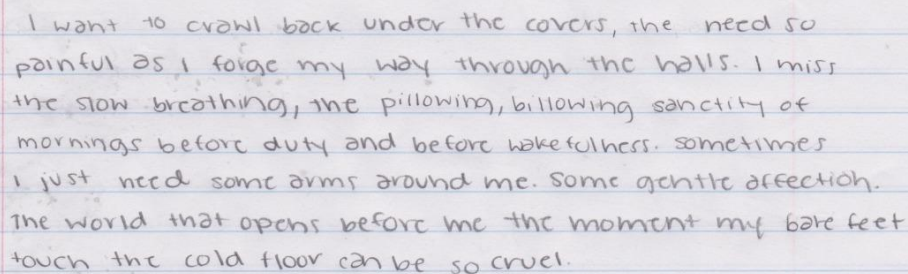 I want to crawl back under the covers, the need so
painful as I forge my way through the halls. I miss
the slow breathing, the pillowing, billowing sanctity of
mornings before duty and before wakefulness. Sometimes
I just need some arms around me. Some gentle affection.
The world that opens before me the moment my bare feet
touch the cold floor can be so cruel.